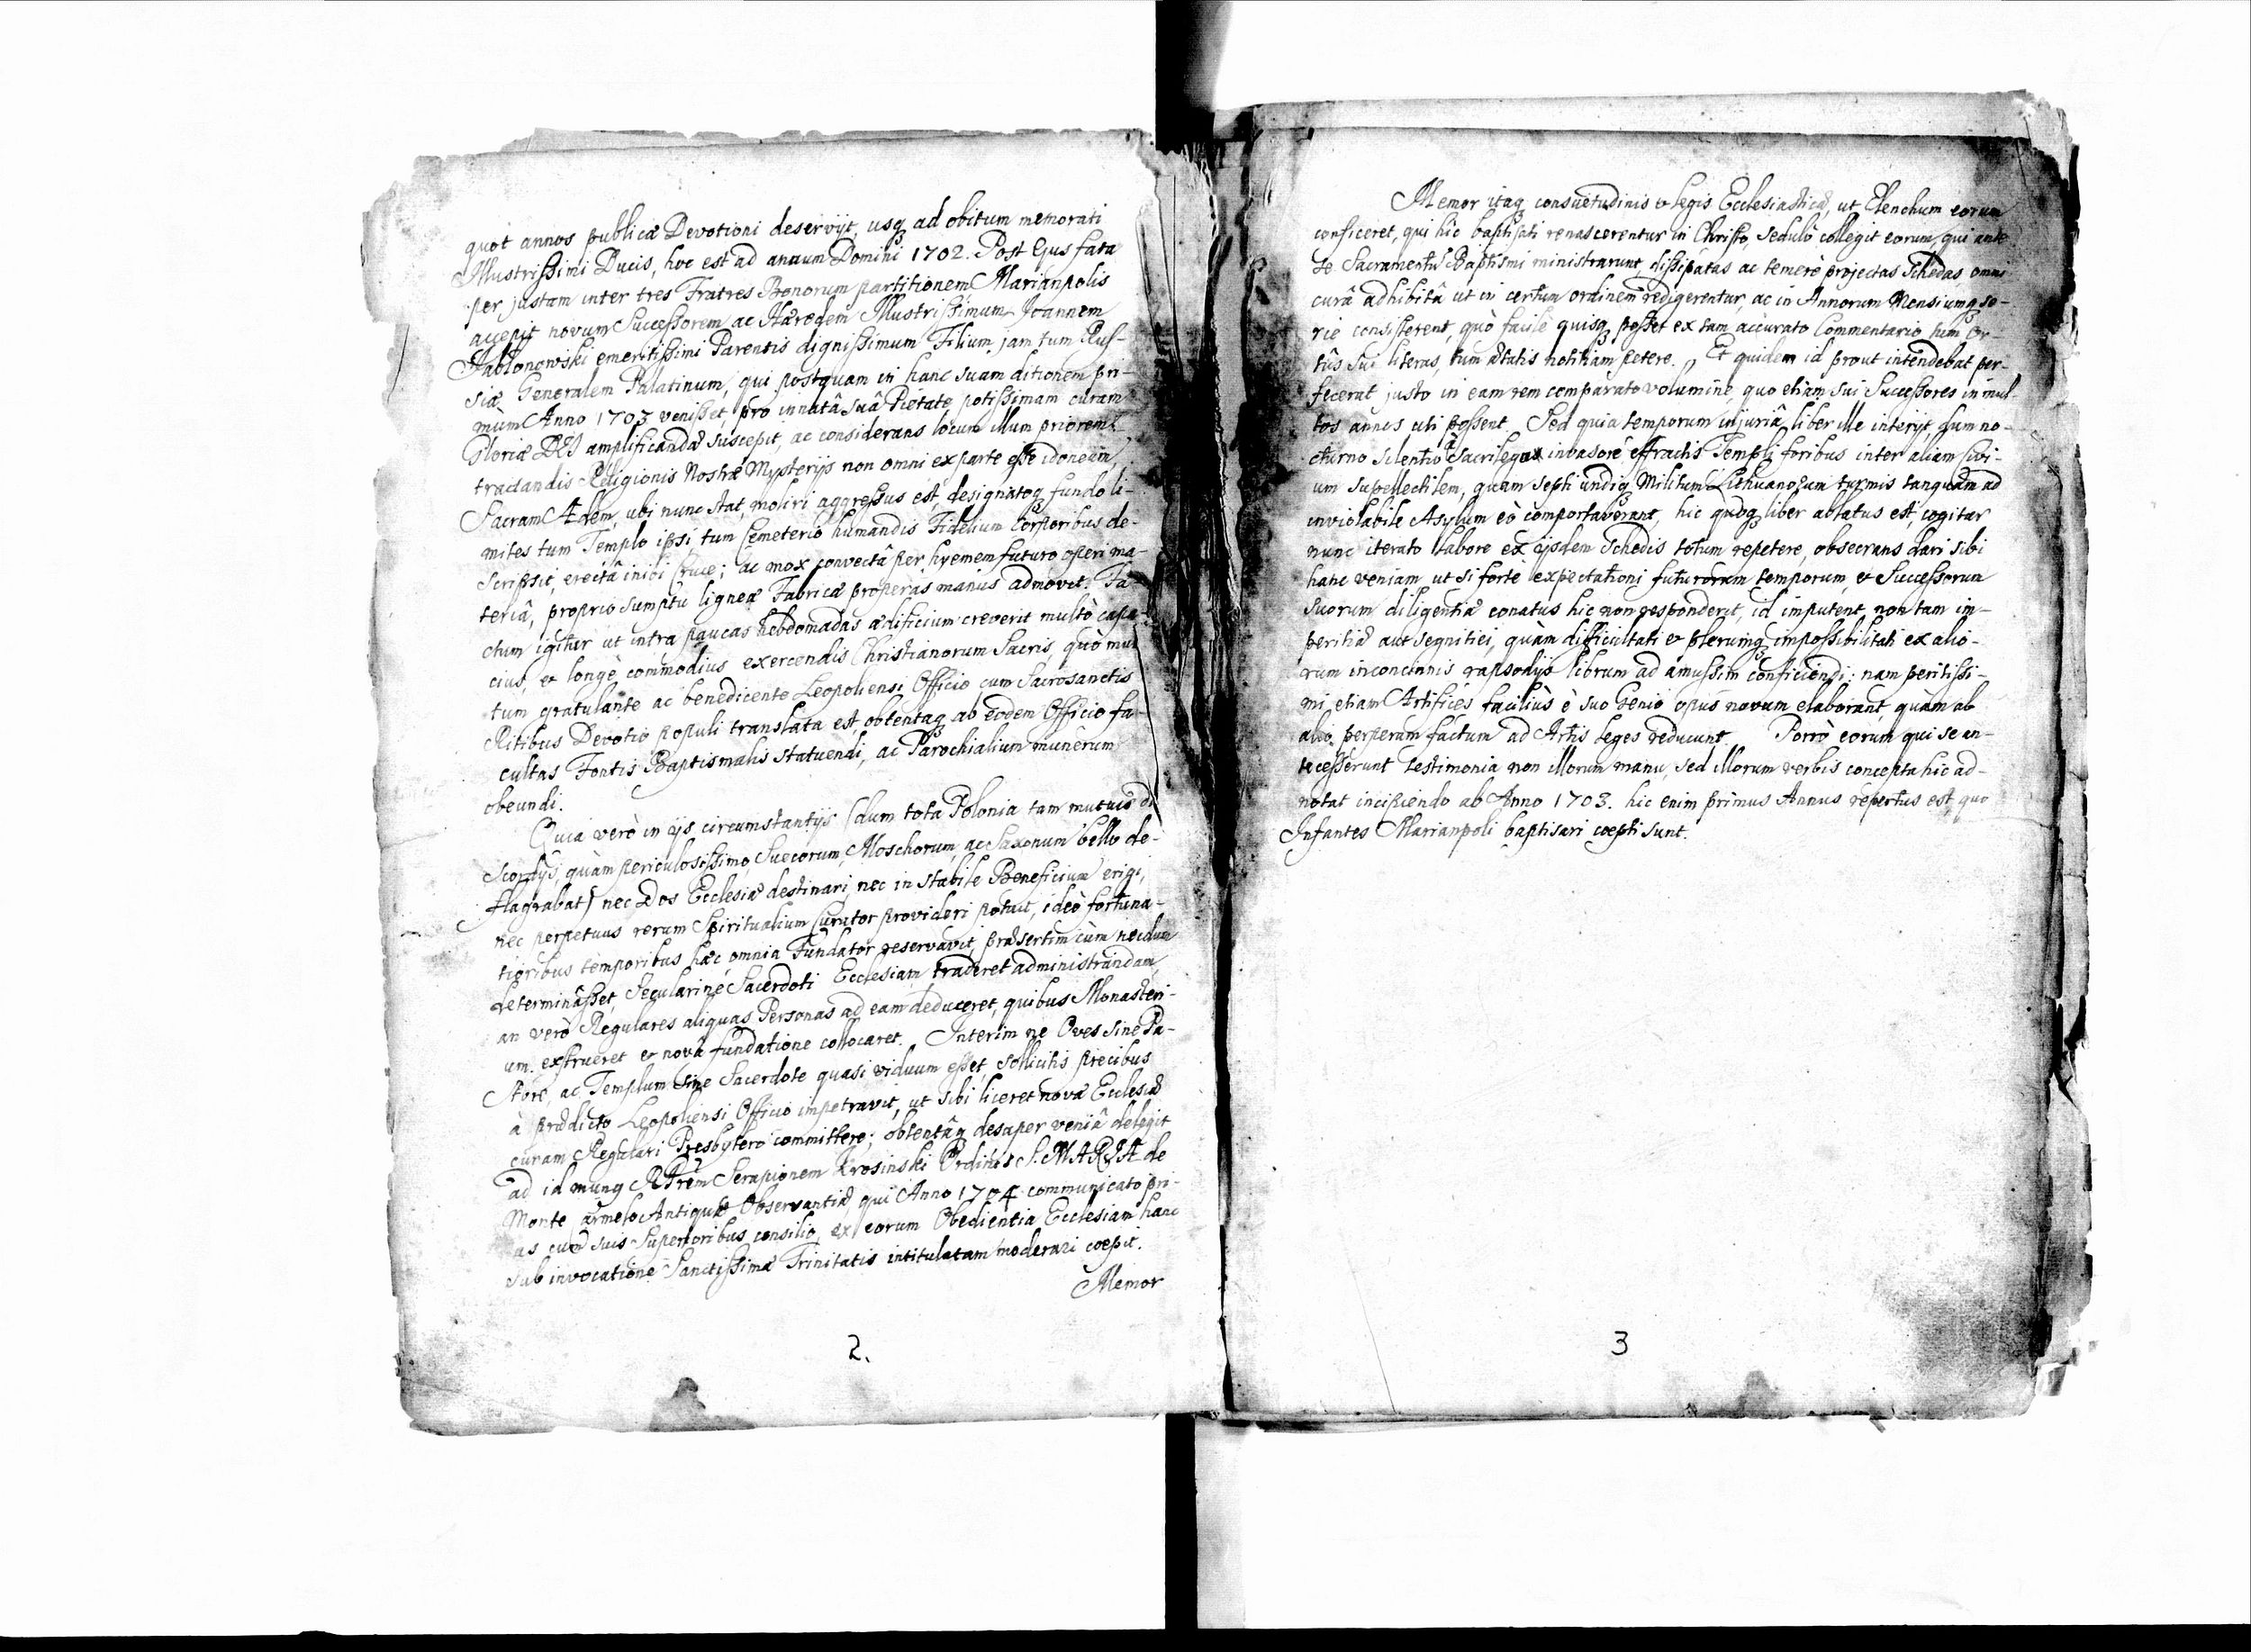 quot annos publicæ Devotioni deservijt, usq ad obitum memorati
Illustrissimi Ducis, hoc est ad annum Domini 1702. Post Ejus fata
per justam inter tres Fratres Bonorum partitionem Marianpolis
accepit novum Successorem ac Hæredem Illustrissimum Joannem
Jabłonowski emeritissimi Parentis dignissimum Filium, jam tum Rus-
siæ Generalem Palatinum, qui postquam in hanc suam ditionem pri-
mùm Anno 1703 venisset, pro innatâ suâ Pietate potissimam curam
Gloriæ DEI amplificandæ suscepit, ac considerans locum illum priorem
tractandis Religionis Nostræ Mysterijs non omni ex parte esse idoneum,
Sacram Ædem, ubi nunc stat, moliri aggressus est, designatoq fundo li-
mites tum Templo ipsi tum Cæmeterio humandis Fidelium Corporibus de-
scripsit, erectâ inibi Cruce; ac mox convectâ per hyemem futuro operi ma-
teriâ, proprio sumptu ligneæ Fabricæ properas manus admovit. Fa-
ctum igitur ut intra paucas hebdomadas ædificium creverit multò capa-
cius, & longè commodius exercendis Christianorum Sacris, quò mul
tum gratulante ac benedicente Leopoliensi Officio cum Sacrosanctis
Ritibus Devotio populi translata est, obtentaq ab eodem Officio fa-
cultas Fontis Baptismalis statuendi, ac Parochialium munerum
obeundi.
Quia verò in ijs circumstantijs (dum tota Polonia tam mutuis di
scordijs, quàm periculosissimo, Suecorum, Moschorum, ac Saxonum bello de-
flagrabat) nec Dos Ecclesiæ destinari, nec in stabile Beneficium erigi,
nec perpetuus rerum Spiritualium Curator provideri potuit, ideò fortuna-
tioribus temporibus hæc omnia Fundator reservavit, præsertim cùm necdum
determinâsset, Secularine Sacerdoti Ecclesiam traderet administrandam,
an verò Regulares aliquas Personas ad eam deduceret, quibus Monasteri-
um extrueret & novâ fundatione collocaret. Interim ne Oves sine Pa-
store, ac Templum sine Sacerdote quasi viduum esset, sollicitis precibus
à prædicto Leopoliensi Officio impetravit, ut sibi liceret novæ Ecclesiæ
curam Regulari Presbytero committere; obtentâq desuper veniâ delegit
ad id munq Serapionem Krosinski Ordinis S. MARIÆ de
Monte Carmelo Antiquæ Observantiæ, qui Anno 1704 communicato pri-
us cum suis Superioribus consilio, ex eorum Obedientia Ecclesiam hanc
sub invocatione Sanctissimæ Trinitatis intitulatam moderari coepit.
Memor
2.
Memor itaq consuetudinis & legis Ecclesiasticæ, ut Elenchum eorum
conficeret, qui hic baptisati renascerentur in Christo, sedulò collegit eorum, qui ante
se Sacramentũ Baptismi ministrarunt, dissipatas ac temerè projectas Schedas omni
curâ adhibitâ ut in certum ordinem redigerentur, ac in Annorum Mensiumq se-
rie consisterent, quò facile quisq posset ex tam accurato Commentario tum Or-
tûs sui literas, tum ætatis notitiam petere. Et quidem id prout intendebat per-
fecerat justo in eam rem comparato volumine, quo etiam sui Successores in mul-
tos annos uti possent. Sed quia temporum injuriâ liber ille interijt, dum no-
cturno silentio à Sacrilego invasore effractis Templi foribus inter aliam Civi-
um supellectilem, quam septi undiq Militum Lithuanorum turmis tanquam ad
inviolabile Asylum eò comportaverant, hic quòq liber ablatus est, cogitur
nunc iterato labore ex ijsdem Schedis totum repetere, obsecrans dari sibi
hanc veniam, ut si fortè expectationi futurorum temporum, & Successorum
suorum diligentiæ conatus hic non responderit, id imputent, non tam im-
peritiæ aut segnitiei, quàm difficultati & plerumq impossibilitati ex alio-
rum inconcinnis rapsodijs librum ad ámussim conficiendi: nam peritissi-
mi, etiam Artifices faciliùs è suo Genio opus novum elaborant, quàm ab
alio perperàm factum ad Artis leges reducunt. Porrò eorum qui se an-
tecesserunt testimonia non illorum manu, sed illorum verbis concepta hic ad-
notat incipiendo ab Anno 1703. hic enim primus Annus repertus est, quo
Infantes Marianpoli baptisari coepti sunt.
3